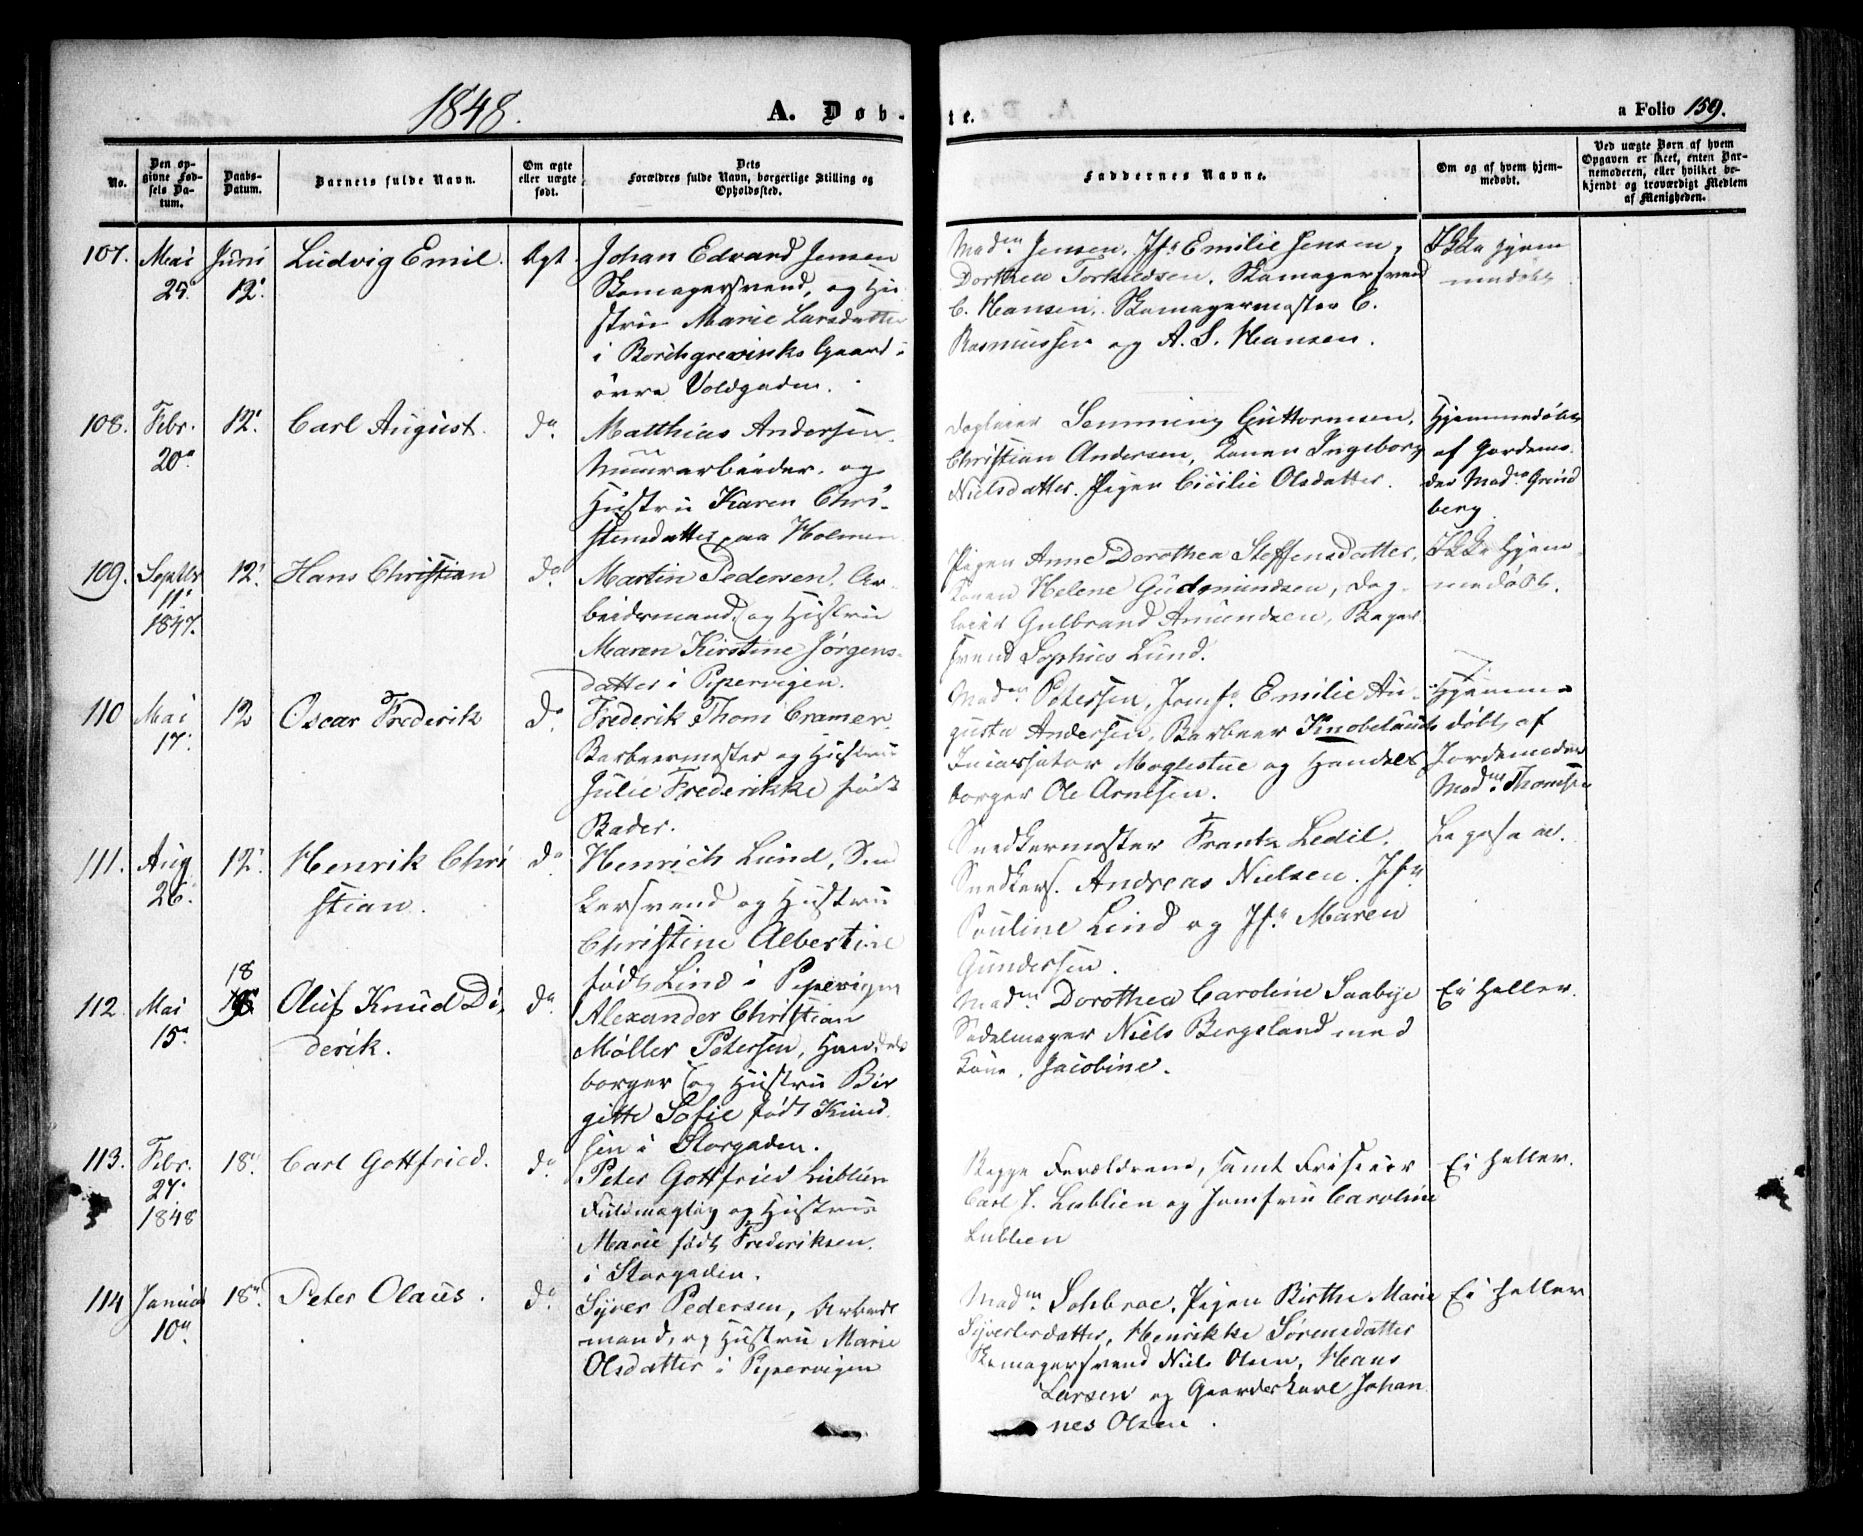 1848.
A. Døb-
te.
a Folio 159.
No.
Den op-
givne Fød-
sels Da-
tum.
Daabs-
Datum.
Barnets fulde Navn.
Om ægte
eller uægte
født.
Dets
Forældres fulde Navn, borgerlige Stilling og
Opholdssted.
Faddernes Navne.
Om og af hvem hjem-
medøbt.
Ved uægte Børn af hvem
Opgaven er skeet, enten Bar-
nemoderen, eller hvilket be-
kjendt og troværdigt Medlem
af Menigheden.
107. Mai
25'
Juni
12'
Ludvig Emil.
Ægt.
Johan Edvard Jensen
Skomagersvend, og Hu
stru Marie Larsdatter
i Borchgrevinks Gaard i
øvre Voldgaden.
Madm Jensen, Jfr Emilie Jensen,
Dorthea Torkildsen, Skomagersvend
C. Hansen, Skomagermester C.
Rasmussen og A. S. Hansen.
Ikke hjem
medøbt
108. Febr.
20de
12'
Carl August.
do
Matthias Andersen
Muurarbeider, og
Hustru Karen Chri-
stensdatter paa Holmen
Dagleier Semming Guttormsen,
Christian Andersen, Konen Ingeborg
Nielsdatter. Pigen Cicilie Olsdatter.
Hjemmedøbt
af Jordemo-
der Madm Gründ
berg
109. Septbr
11'
1847.
12'
Hans Christian
do
Martin Pedersen, Ar-
beidsmand, og Hustru
Maren Kirstine Jørgens-
datter i Pipervigen.
Pigen Anne Dorothea Steffensdatter,
Konen Helene Gudmundsen, Dag-
leier Gulbrand Amundsen, Bager
svend Sophus Lund.
Ikke Hjem-
medøbt.
110 Mai
17'
12
Oscar Frederik
do
Frederik Thom Cramer
Barbeermester og Hustru
Julie Frederikke født
Bader.
Madm Petersen, Jomf. Emilie Au-
gusta Andersen, Barbeer Knobelauch
Incassator Moglestue og Handels
borger Ole Arnesen.
Hjemme
døbt af
Jordemoder
Madm Thomsen
111. Aug
26.
12'
Henrik Chri
stian.
do
Henrich Lund, Sned
kersvend og Hustru
Christine Albertine
født Lind i Pipervigen
Snedkermester Frantz Ledil,
Snedkers. Andreas Nielsen. Jfr
Pouline Lind og Jfr Maren
Gundersen.
112. Mai
15de
18
Oluf Knud Di,
derik.
do
Alexander Christian
Møller Petersen, Handels
borger og Hustru Bir
gitte Sofie født Knud
sen i Storgaden.
Madm Dorothea Caroline Saabye
Sadelmager Niels Bergeland med
Kone, Jacobine.
Ei heller.
113. Febr.
27.
1848
18'
Carl Gottfried.
do
Peter Gottfried Lublien
Fuldmægtig og Hustru
Marie født Frederiksen.
i Storgaden.
Begge Forældrene, samt Friseur
Carl F. Lublien og Jomfru Caroline
Lublien
Ei heller.
114 Januar
10de
18de
Peter Olaus.
do
Syver Pedersen, Arbeids
mand, og Hustru Marie
Olsdatter i Pipervigen
Madm Sohbroe, Pigen Birthe Marie
Syvertsdatter, Henrikke Sørensdatter
Skomagersvend Niels Olsen, Hans
Larsen og Gaardskarl Johan
nes Olsen.
Ei heller